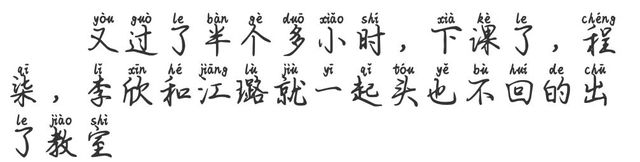 yòu guò le bàn gè duō xiǎo shí xià kè le chéng
又过了半个多小时，下课了，程
qī lǐ xīn hé jiāng lù jiù yī qǐ tóu yě bù huí de chū
柒，李欣和江璐就一起头也不回的出
le jiào shì
了教室